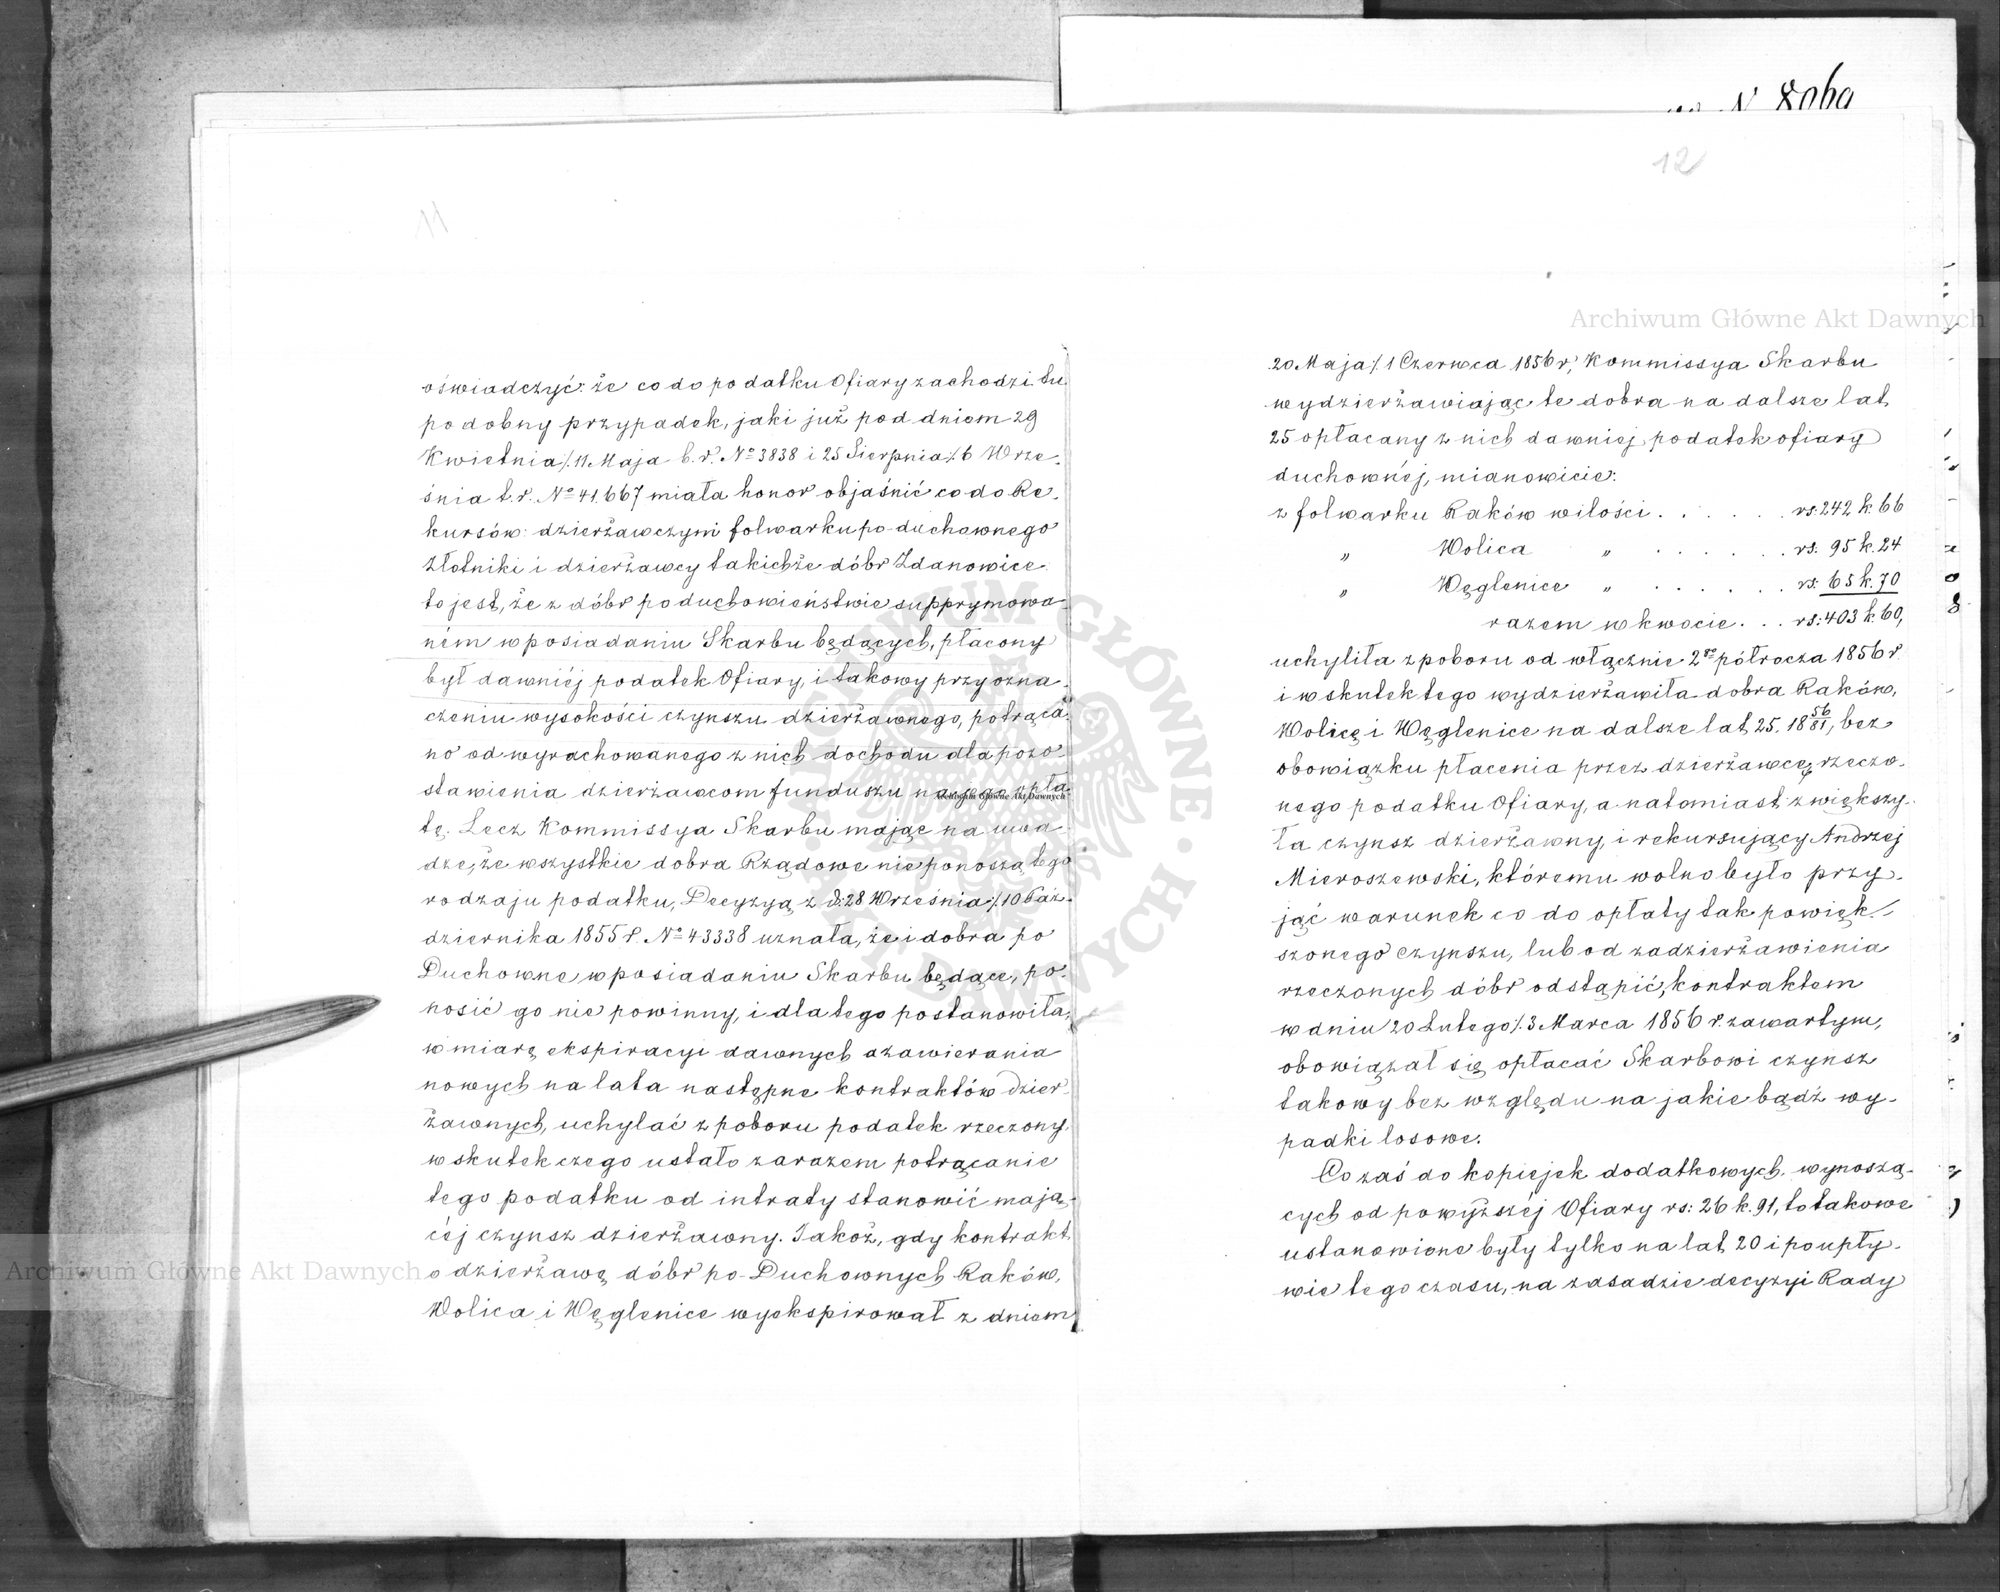 11
oświadczyć: że co do podatku Ofiary zachodzi tu
podobny przypadek, jaki już pod dniem 29
Kwietnia/11 Maja b. r. No 3838 i 25 Sierpnia/6 Wrze-
śnia t. r. No 41.667 miała honor objaśnić co do Re-
kursów: dzierżawczyni folwarku po-duchownego
Złotniki i dzierżawcy takichże dóbr Zdanowice
to jest, że z dóbr po duchowieństwie supprymowa-
ném w posiadaniu Skarbu będących, płacony
był dawniéj podatek Ofiary, i takowy przy ozna-
czeniu wysokości czynszu dzierżawnego, potrąca-
no od wyrachowanego z nich dochodu dla pozo-
stawienia dzierżawcom funduszu na jego opła-
tę. Lecz Kommissya Skarbu mając na uwa-
dze, że wszystkie dobra Rządowe nie ponoszą tego
rodzaju podatku, Decyzyą z d: 28 Września/10 Paź-
dziernika 1855 r. No 43338 uznała, że i dobra po
Duchowne w posiadaniu Skarbu będące, po-
nosić go nie powinny, i dla tego postanowiła,
w miarę ekspiracyi dawnych a zawierania
nowych na lata następne kontraktów dzier-
żawnych, uchylać z poboru podatek rzeczony,
w skutek czego ustało zarazem potrącanie
tego podatku od intraty stanowić mają-
céj czynsz dzierżawny. Jakoż, gdy kontrakt
o dzierżawę dóbr po-Duchownych Raków,
Wolica i Węglenice wyekspirował z dniem
12
20 Maja/1 Czerwca 1856 r, Kommissya Skarbu
wydzierżawiając te dobra na dalsze lat
25 opłacany z nich dawniej podatek ofiary
duchownéj, mianowicie:
z folwarku Raków w ilości . . . . . . rs: 242 k. 66
„ Wolica „ . . . . . . rs: 95 k. 24
„ Węglenice „ . . . . . . rs: 65 k. 70
razem w kwocie . . . rs: 403 k. 60,
uchyliła z poboru od włącznie 2go półrocza 1856 r
i w skutek tego wydzierżawiła dobra Raków,
Wolicę i Węglenice na dalsze lat 25. 18 56/81, bez
obowiązku płacenia przez dzierżawcę rzeczo-
nego podatku Ofiary, a natomiast zwiększy-
ła czynsz dzierżawny, i rekursujący Andrzej
Mieroszewski, któremu wolno było przy-
jąć warunek co do opłaty tak powięk-
szonego czynszu, lub od zadzierżawienia
rzeczonych dóbr odstąpić, kontraktem
w dniu 20 Lutego/3 Marca 1856 r. zawartym,
obowiązał się opłacać Skarbowi czynsz
takowy bez względu na jakie bądź wy-
padki losowe.
Co zaś do kopiejek dodatkowych wynoszą-
cych od powyższéj Ofiary rs: 26 k. 91, to takowe
ustanowione były tylko na lat 20 i po upły-
wie tego czasu, na zasadzie decyzyi Rady
Archiwum Główne Akt Dawnych
Archiwum Główne Akt Dawnych
Archiwum Główne Akt Dawnych
ARCHIWUM GŁÓWNE AKT DAWNYCH